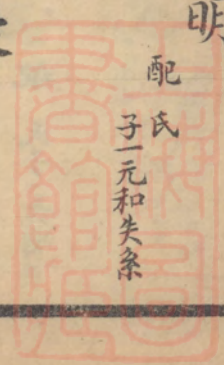 明
配氏
子一元和失系